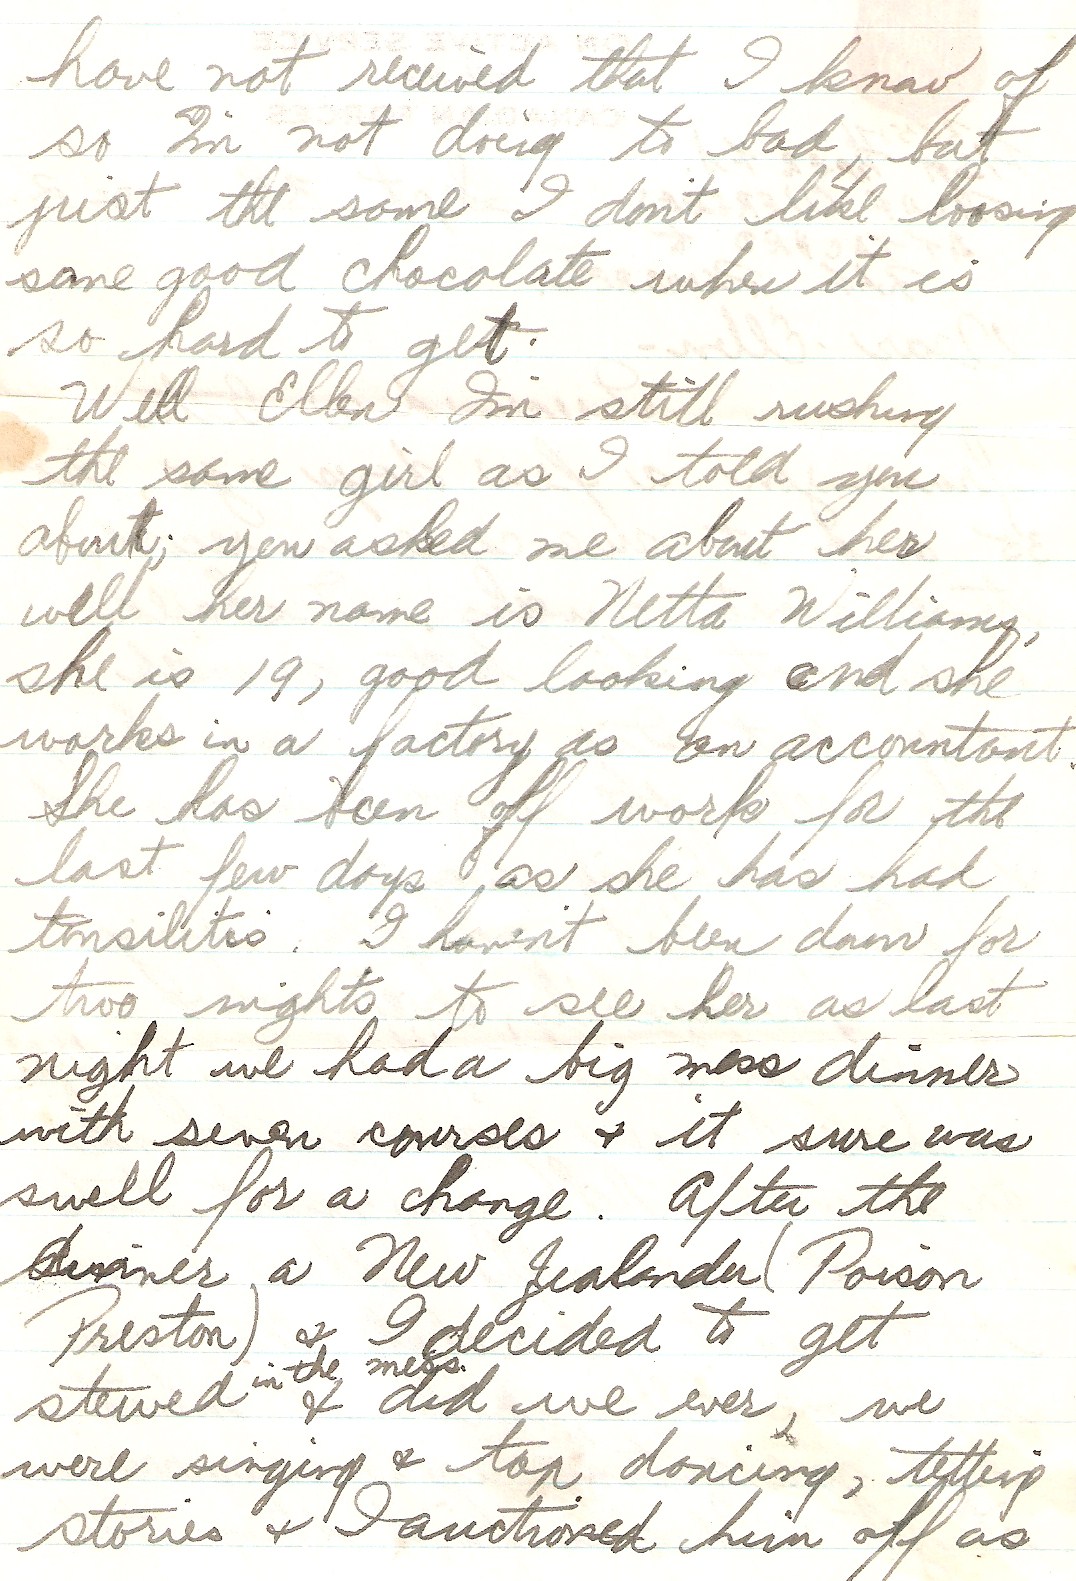 have not received that I know of
so I'm not doing to bad, but
just the same I don't like loosing
some good chocolate when it is
so hard to get.
Well Ellen I'm still rushing
the same girl as I told you
about; you asked me about her
well her name is Netta Williams,
she is 19, good looking and she
works in a factory as an accountant.
She has been off work for the
last few days as she has had
tonsilitis. I haven't been down for
two nights to see her as last
night we had a big mess dinner
with seven courses & it sure was
swell for a change. After the
dinner a New Zealander (Poison
Preston) & I decided to get
stewed in the mess. & did we ever, we
were singing & tap dancing, telling
stories & I auctioned him off as